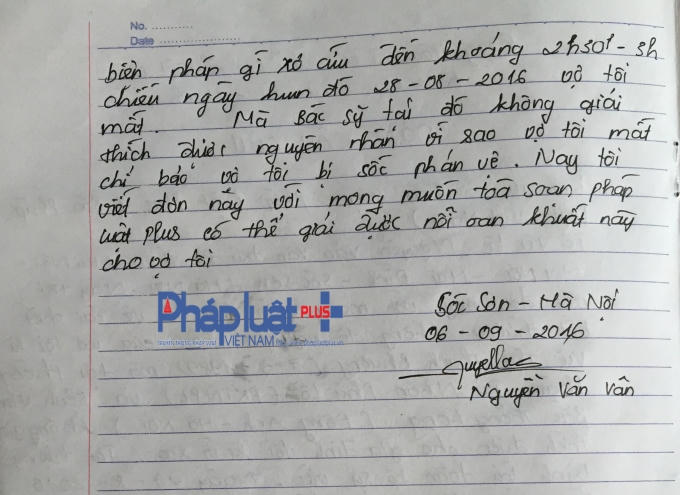 No. ............
Date ........................
biện pháp gì xử cứu đến khoảng 2h30' - 3h
chiều ngày hum đó 28-08-2016 vợ tôi
mất. Mà Bác sỹ tại đó không giải
thích được nguyên nhân vì sao vợ tôi mất
chỉ bảo vợ tôi bị sốc phản vệ. Nay tôi
viết đơn này với mong muốn tòa soạn pháp
luật plus có thể giải được nỗi oan khuất này
cho vợ tôi
Pháp luật PLUS
VIỆT NAM
Sóc Sơn - Hà Nội
06 - 09 - 2016
Nguyễn Văn Vân